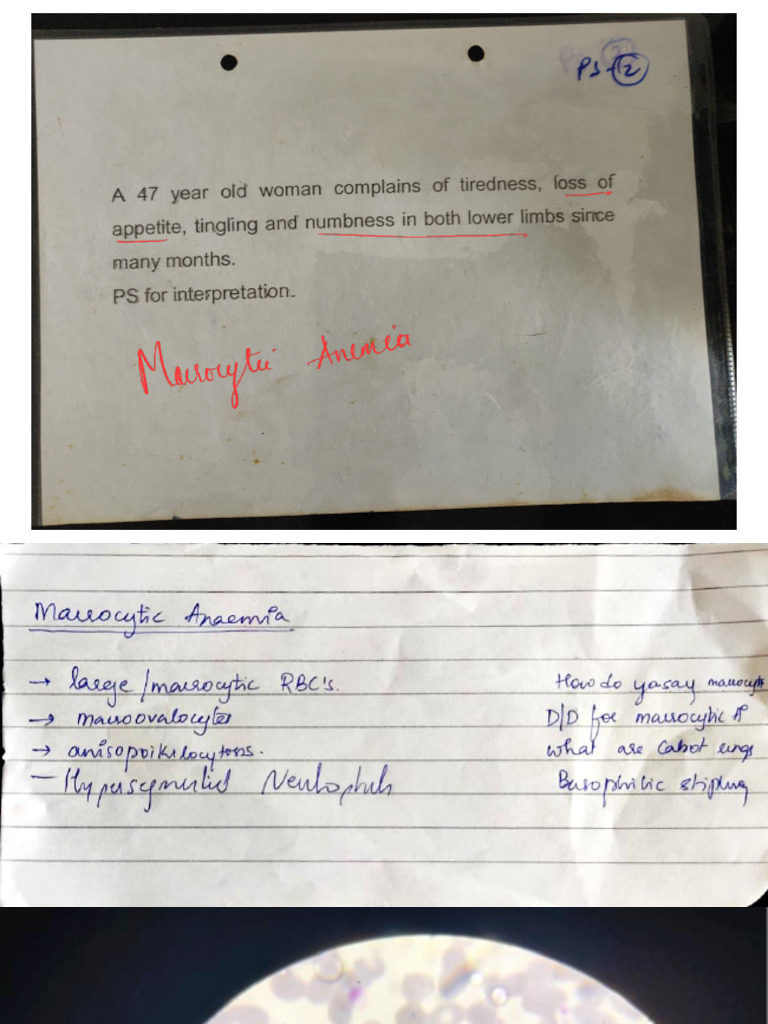 PS-12
A 47 year old woman complains of tiredness, loss of
appetite, tingling and numbness in both lower limbs since
many months.
PS for interpretation.
Macrocytic Anemia
Macrocytic Anaemia
→ large/macrocytic RBC's.
→ macroovalocytes
→ anisopoikilocytons.
— Hypersegmented Neutrophils
How do you say macrocytic
D/D for macrocytic A
what are Cabot rings
Basophilic stipling